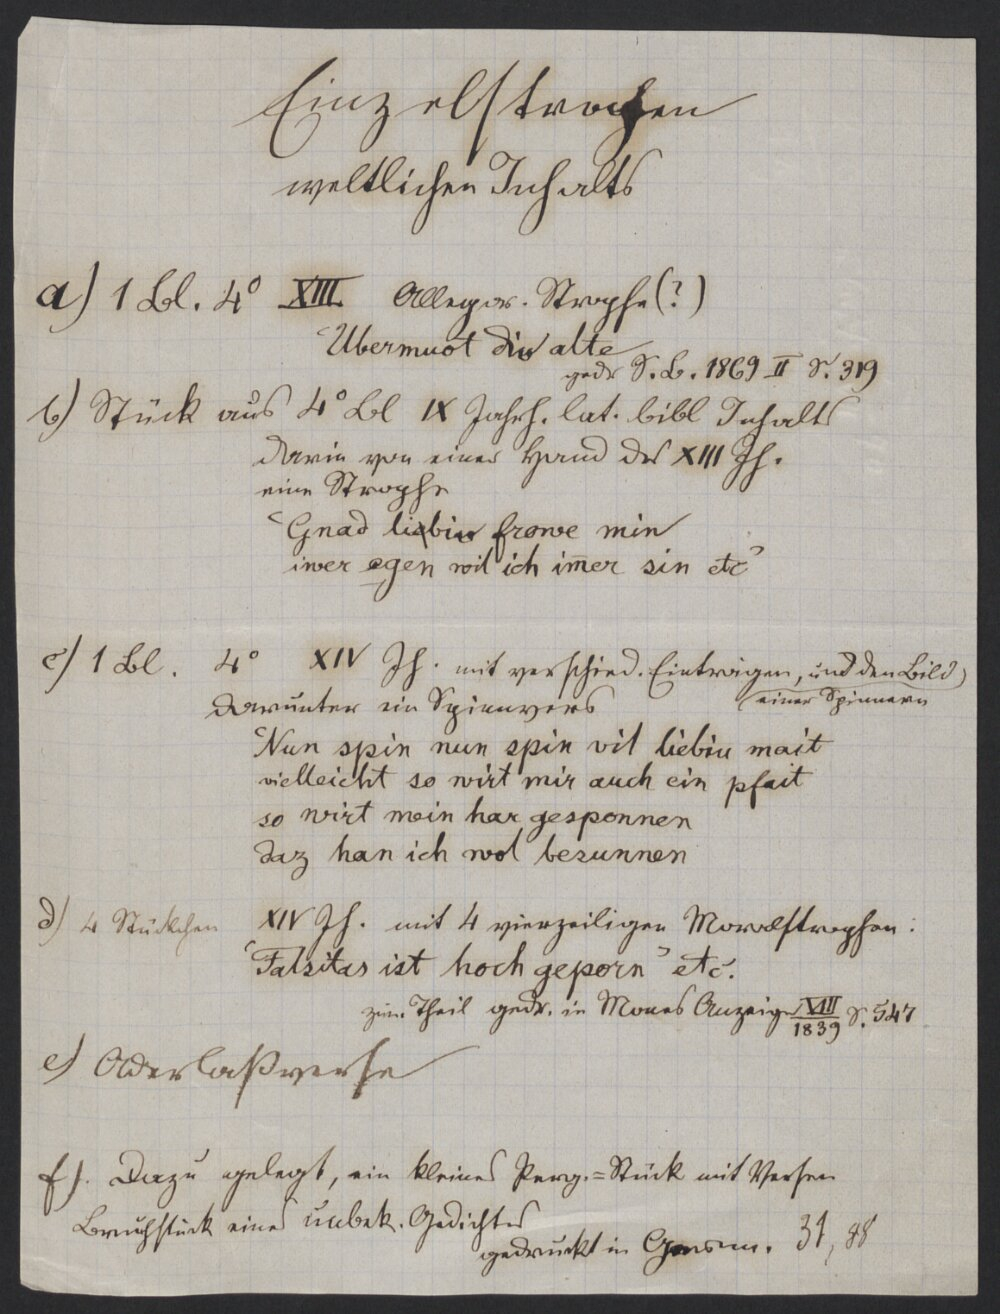 Einzelstrophen
weltlichen Inhalts
a) 1 Bl. 4° XIII. Allegor. Strophe (?)
Ubermuot diu alte
gedr S. B. 1869 II S. 319
b) Stück aus 4° Bl IX Jahrh. lat. bibl Inhalts
darin von einer Hand des XIII Jh.
eine Strophe
"Gnad liebiu frowe min
iwer egen wil ich im̄er sin etc"
c) 1 Bl. 4° XIV Jh. mit verschied. Einträgen, und dem Bild
einer Spinnerin
darunter ein Spinnvers
Nun spin nun spin vil liebiu mait
vielleicht so wirt mir auch ein pfait
so wirt mein har gesponnen
daz han ich wol besunnen
d) 4 Stückchen XIV Jh. mit 4 vierzeiligen Moralstrophen:
"Falsitas ist hoch geporn" etc.
zum Theil gedr. in Mones Anzeiger VIII 1839 S. 547
e) Aderlaßverse
f). Dazu gelegt, ein kleines Perg.=Stück mit Versen
Bruchstück eines unbek. Gedichtes
gedruckt in Germ. 31, 88